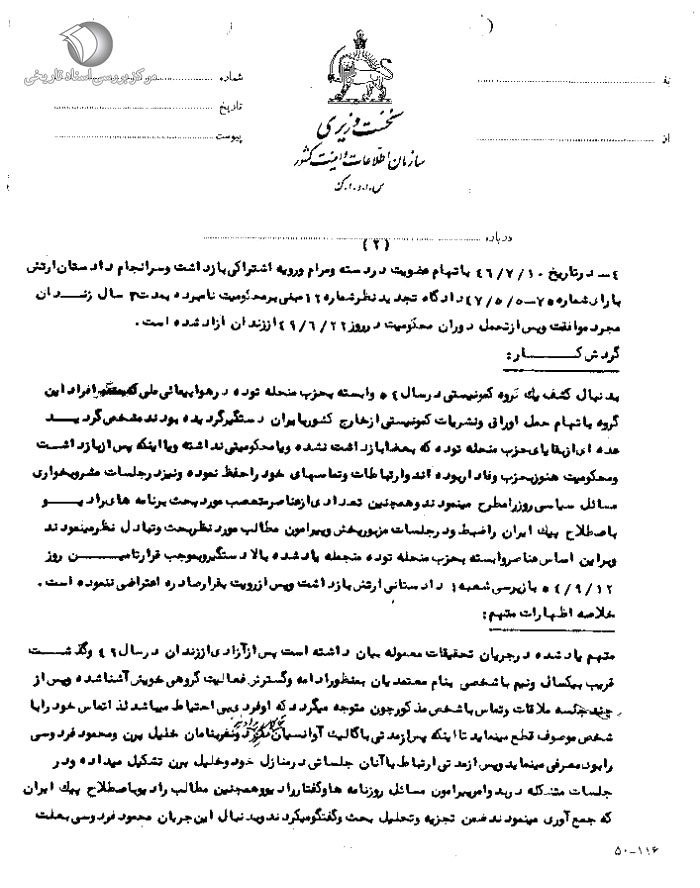 مرکز بررسی اسناد تاریخی
شماره
تاریخ
پیوست
نخست وزیری
سازمان اطلاعات و امنیت کشور
س.ا.و.ا.ک
به
از
درباره
(۲)
۴ـ در تاریخ ۴۶/۷/۱۰ باتهام عضویت در دسته ومرام ورویه اشتراکی بازداشت وسرانجام دادستان ارتش
بارای شماره ۷۵-۴۷/۵/۵ دادگاه تجدید نظر شماره ۱۲ مبنی بر محکومیت نامبرده بمدت ۳ سال زندان
مجرد موافقت وپس از تحمل دوران محکومیت در روز ۴۹/۶/۲۲ از زندان آزاد شده است.
گردش کار:
بدنبال کشف یک گروه کمونیستی در سال ۵۴ وابسته بحزب منحله توده در هواپیمائی ملی که افراد این
گروه باتهام حمل اوراق ونشریات کمونیستی از خارج کشور بایران دستگیر گردیده بودند مشخص گردید
عده ای از بقایای حزب منحله توده که بعضا بازداشت نشده ویا محکومیتی نداشته ویا اینکه پس از بازداشت
ومحکومیت هنوز بحزب وفادار بوده اند وارتباطات وتماسهای خود را حفظ نموده ونیز در جلسات مشروبخواری
مسائل سیاسی روز را مطرح مینمودند وهمچنین تعدادی از عناصر متعصب مورد بحث برنامه های رادیو
باصطلاح پیک ایران را ضبط ودر جلسات مزبور پخش وپیرامون مطالب مورد نظر بحث وتبادل نظر مینمودند
وبر این اساس عناصر وابسته بحزب منحله توده منجمله یاد شده بالا دستگیر وبموجب قرار تامین روز
۵۴/۹/۱۲ بازپرسی شعبه ۱ دادستانی ارتش بازداشت وپس از رویت بقرار صادره اعتراضی ننموده است.
خلاصه اظهارات متهم:
متهم یاد شده در جریان تحقیقات معموله بیان داشته است پس از آزادی از زندان در سال ۴۹ وگذشت
قریب بیکسال ونیم با شخصی بنام معتمدیان بمنظور ادامه وگسترش فعالیت گروهی خویش آشنا شده وپس از
چند جلسه ملاقات وتماس با شخص مذکور چون متوجه میگردد که او فردی بی احتیاط میباشد لذا تماس خود را با
شخص موصوف قطع مینماید تا اینکه پس از مدتی با گالیک آوانسیان ودو نفر بنامان خلیل برن ومحمود فردوسی
را بود معرفی مینماید وپس از مدتی ارتباط با آنان جلساتی در منازل خود وخلیل برن تشکیل میداده ودر
جلسات متشکله در بدو امر پیرامون مسائل روزنامه ها وگفتار رادیو وهمچنین مطالب رادیو باصطلاح پیک ایران
که جمع آوری مینمودند ضمن تجزیه وتحلیل بحث وگفتگو میکردند وبدنبال این جریان محمود فردوسی بعلت
۵۰-۱۱۶